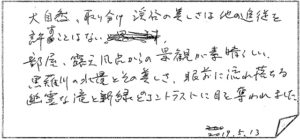 大自然、取り分け渓谷の美しさは他の追従を
許すことはない
部屋、露天風呂からの景観が素晴しい。
黒羅川の水量とその美しさ、眼前に流れ落ちる
幽霊な滝と新緑とコントラストに目を奪われました。
2019.5.13